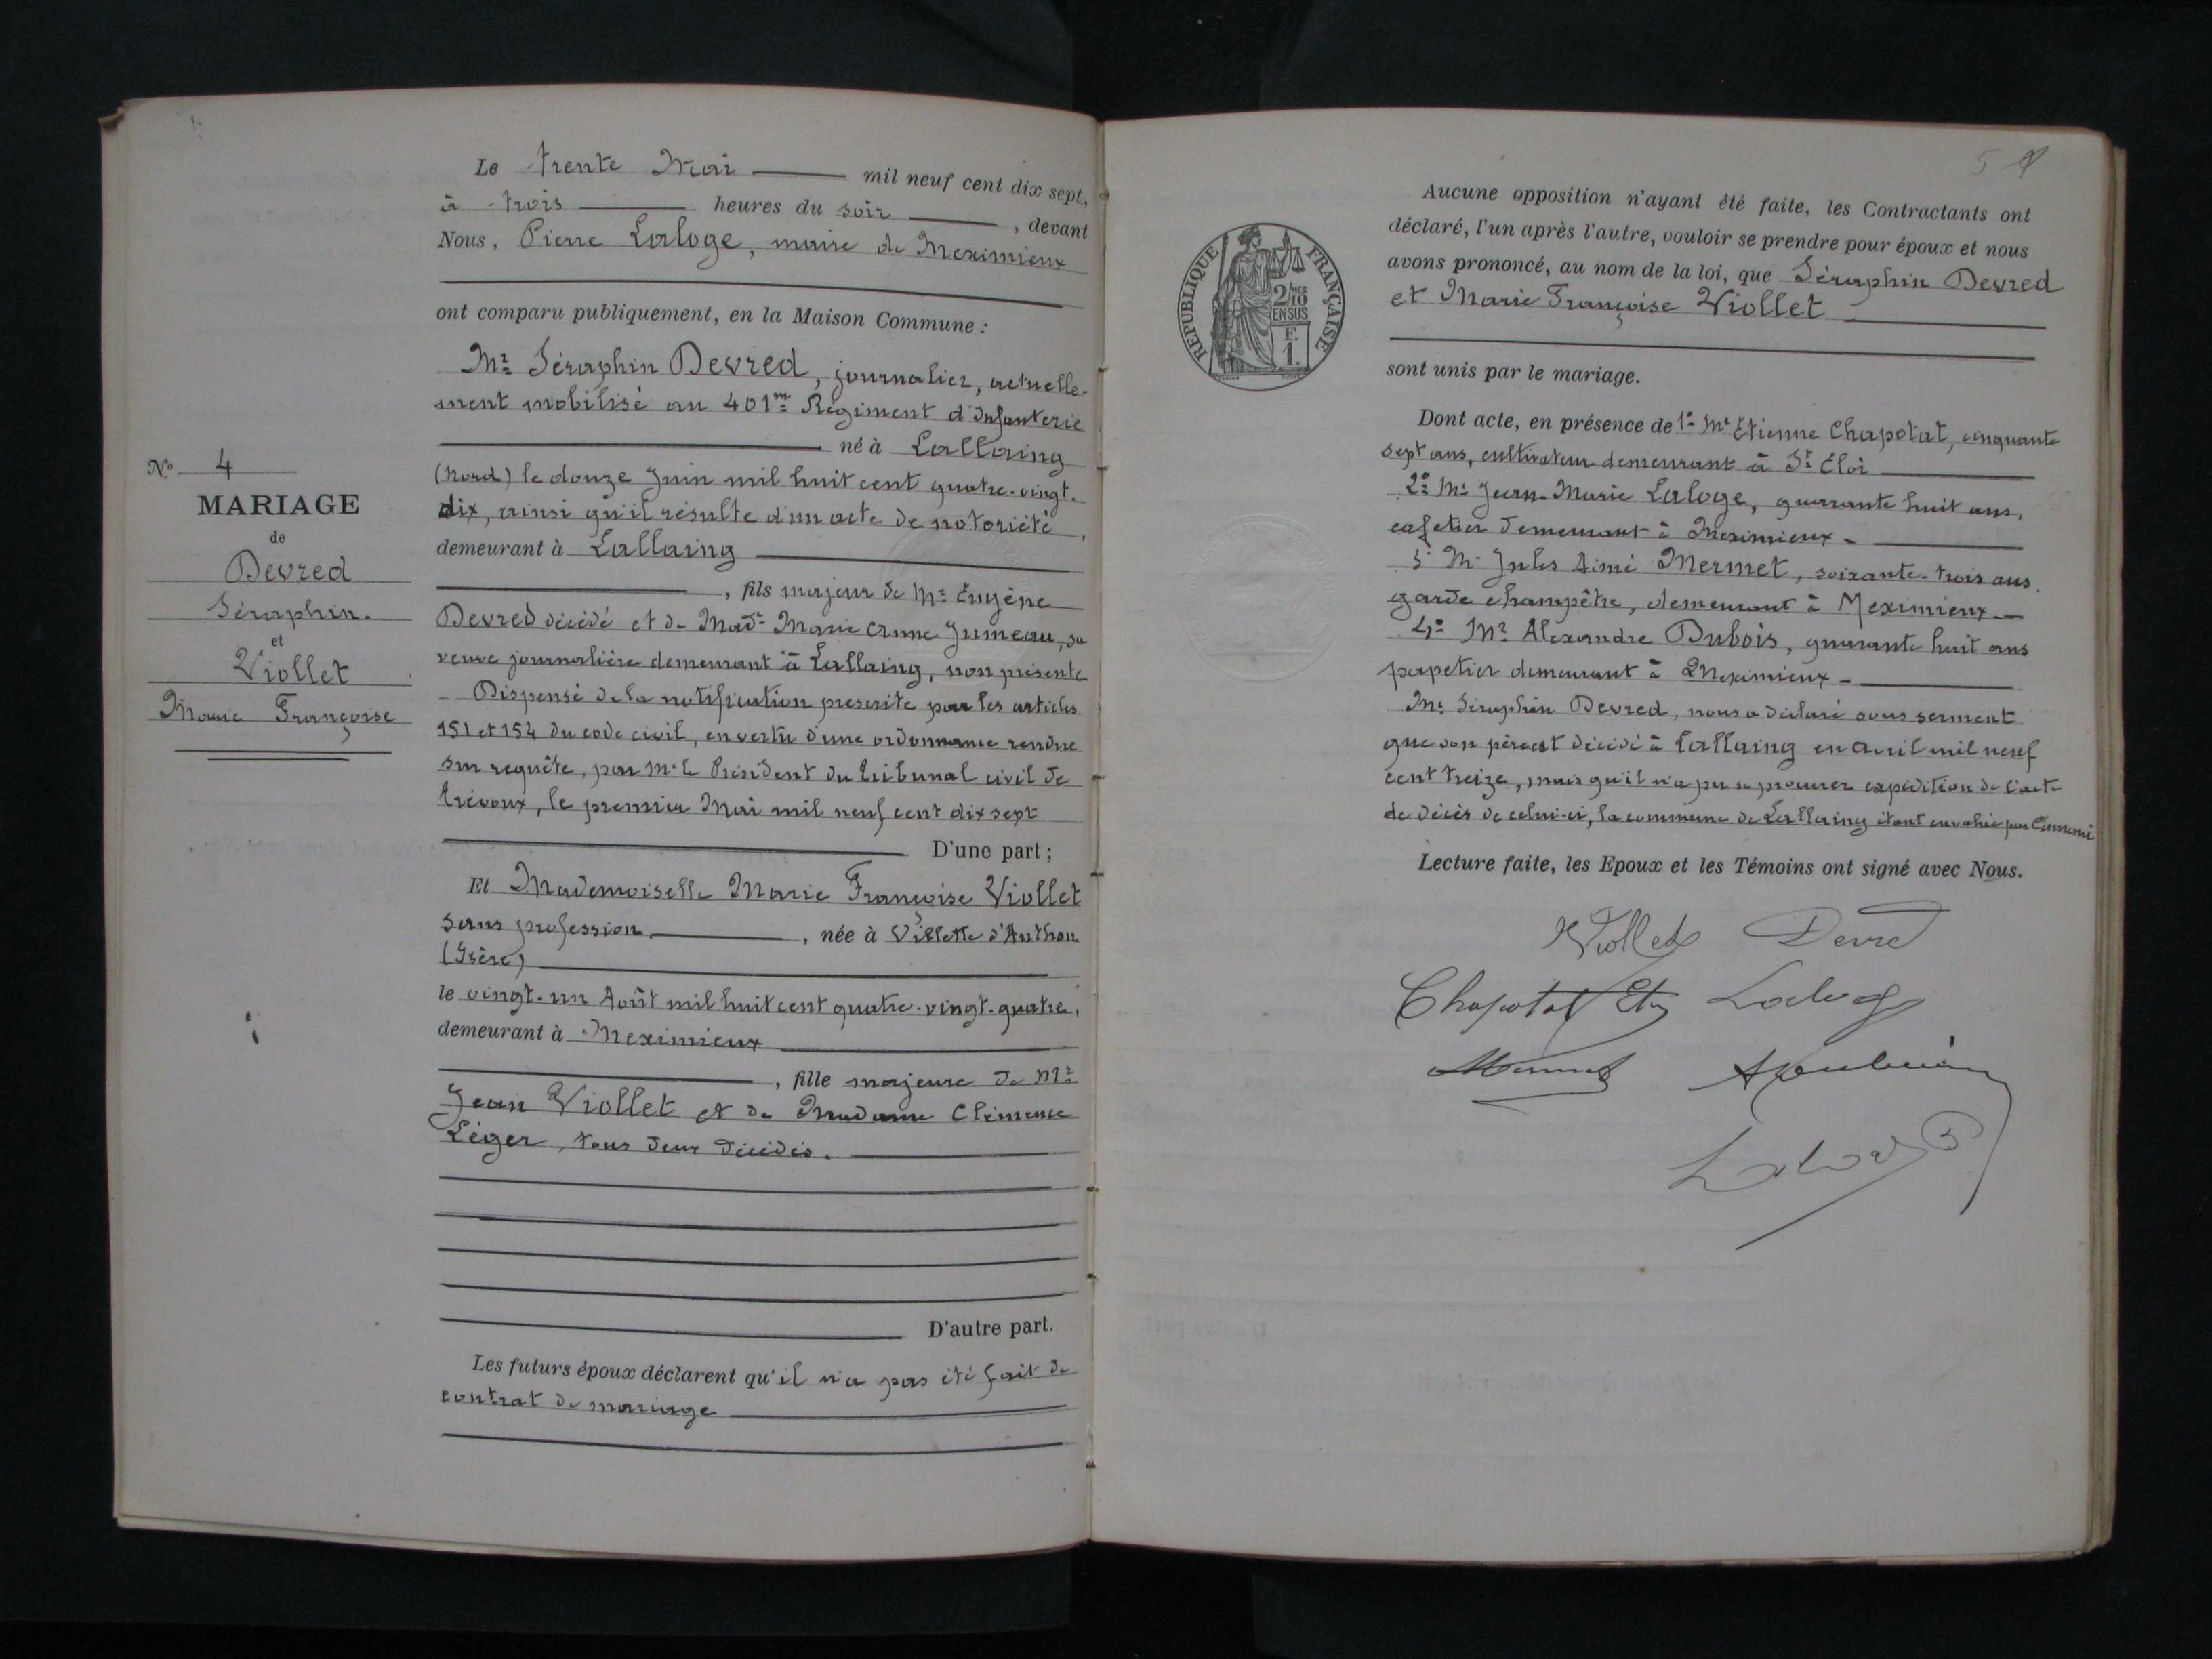 Le trente Mai mil neuf cent dix sept,
à trois heures du soir, devant
Nous, Pierre Laloge, maire de Meximieux
ont comparu publiquement, en la Maison Commune :
Mr Séraphin Devred, journalier, actuelle-
ment mobilisé au 401me Régiment d'Infanterie
né à Lallaing
(Nord) le douze Juin mil huit cent quatre-vingt-
dix, ainsi qu'il résulte d'un acte de notoriété,
demeurant à Lallaing
, fils majeur de Mr Eugène
Devred décédé et de Made Marie Anne Jumeau, sa
veuve journalière demeurant à Lallaing, non présente
- Dispensé de la notification prescrite par les articles
151 et 154 du code civil, en vertu d'une ordonnance rendue
sur requête, par Mr le Président du tribunal civil de
Trévoux, le premier Mai mil neuf cent dix sept
D'une part ;
Et Mademoiselle Marie Françoise Viollet
sans profession, née à Villette d'Anthon
(Isère)
le vingt-un Août mil huit cent quatre-vingt-quatre,
demeurant à Meximieux
, fille majeure de Mr
Jean Viollet et de Madame Clémence
Léger, tous deux décédés.
D'autre part.
Les futurs époux déclarent qu'il n'a pas été fait de
contrat de mariage
No 4
MARIAGE
de
Devred
Séraphin.
et
Viollet
Marie Françoise
5
RÉPUBLIQUE FRANÇAISE
2/10 mes
EN SUS
F.
1.
Aucune opposition n'ayant été faite, les Contractants ont
déclaré, l'un après l'autre, vouloir se prendre pour époux et nous
avons prononcé, au nom de la loi, que Séraphin Devred
et Marie Françoise Viollet
sont unis par le mariage.
Dont acte, en présence de 1º Mr Etienne Chapotat, cinquante
sept ans, cultivateur demeurant à St Eloi
2º Mr Jean-Marie Laloge, quarante huit ans,
cafetier demeurant à Meximieux -
3º Mr Jules Aimé Mermet, soixante-trois ans
garde champêtre, demeurant à Meximieux -
4º Mr Alexandre Dubois, quarante huit ans
papetier demeurant à Meximieux -
Mr Séraphin Devred, nous a déclaré sous serment
que son père est décédé à Lallaing en avril mil neuf
cent treize, mais qu'il n'a pu se procurer expédition de l'acte
de décès de celui-ci, la commune de Lallaing étant envahie par l'ennemi
Lecture faite, les Epoux et les Témoins ont signé avec Nous.
Viollet Devred
Chapotat Laloge
Mermet
Laloge